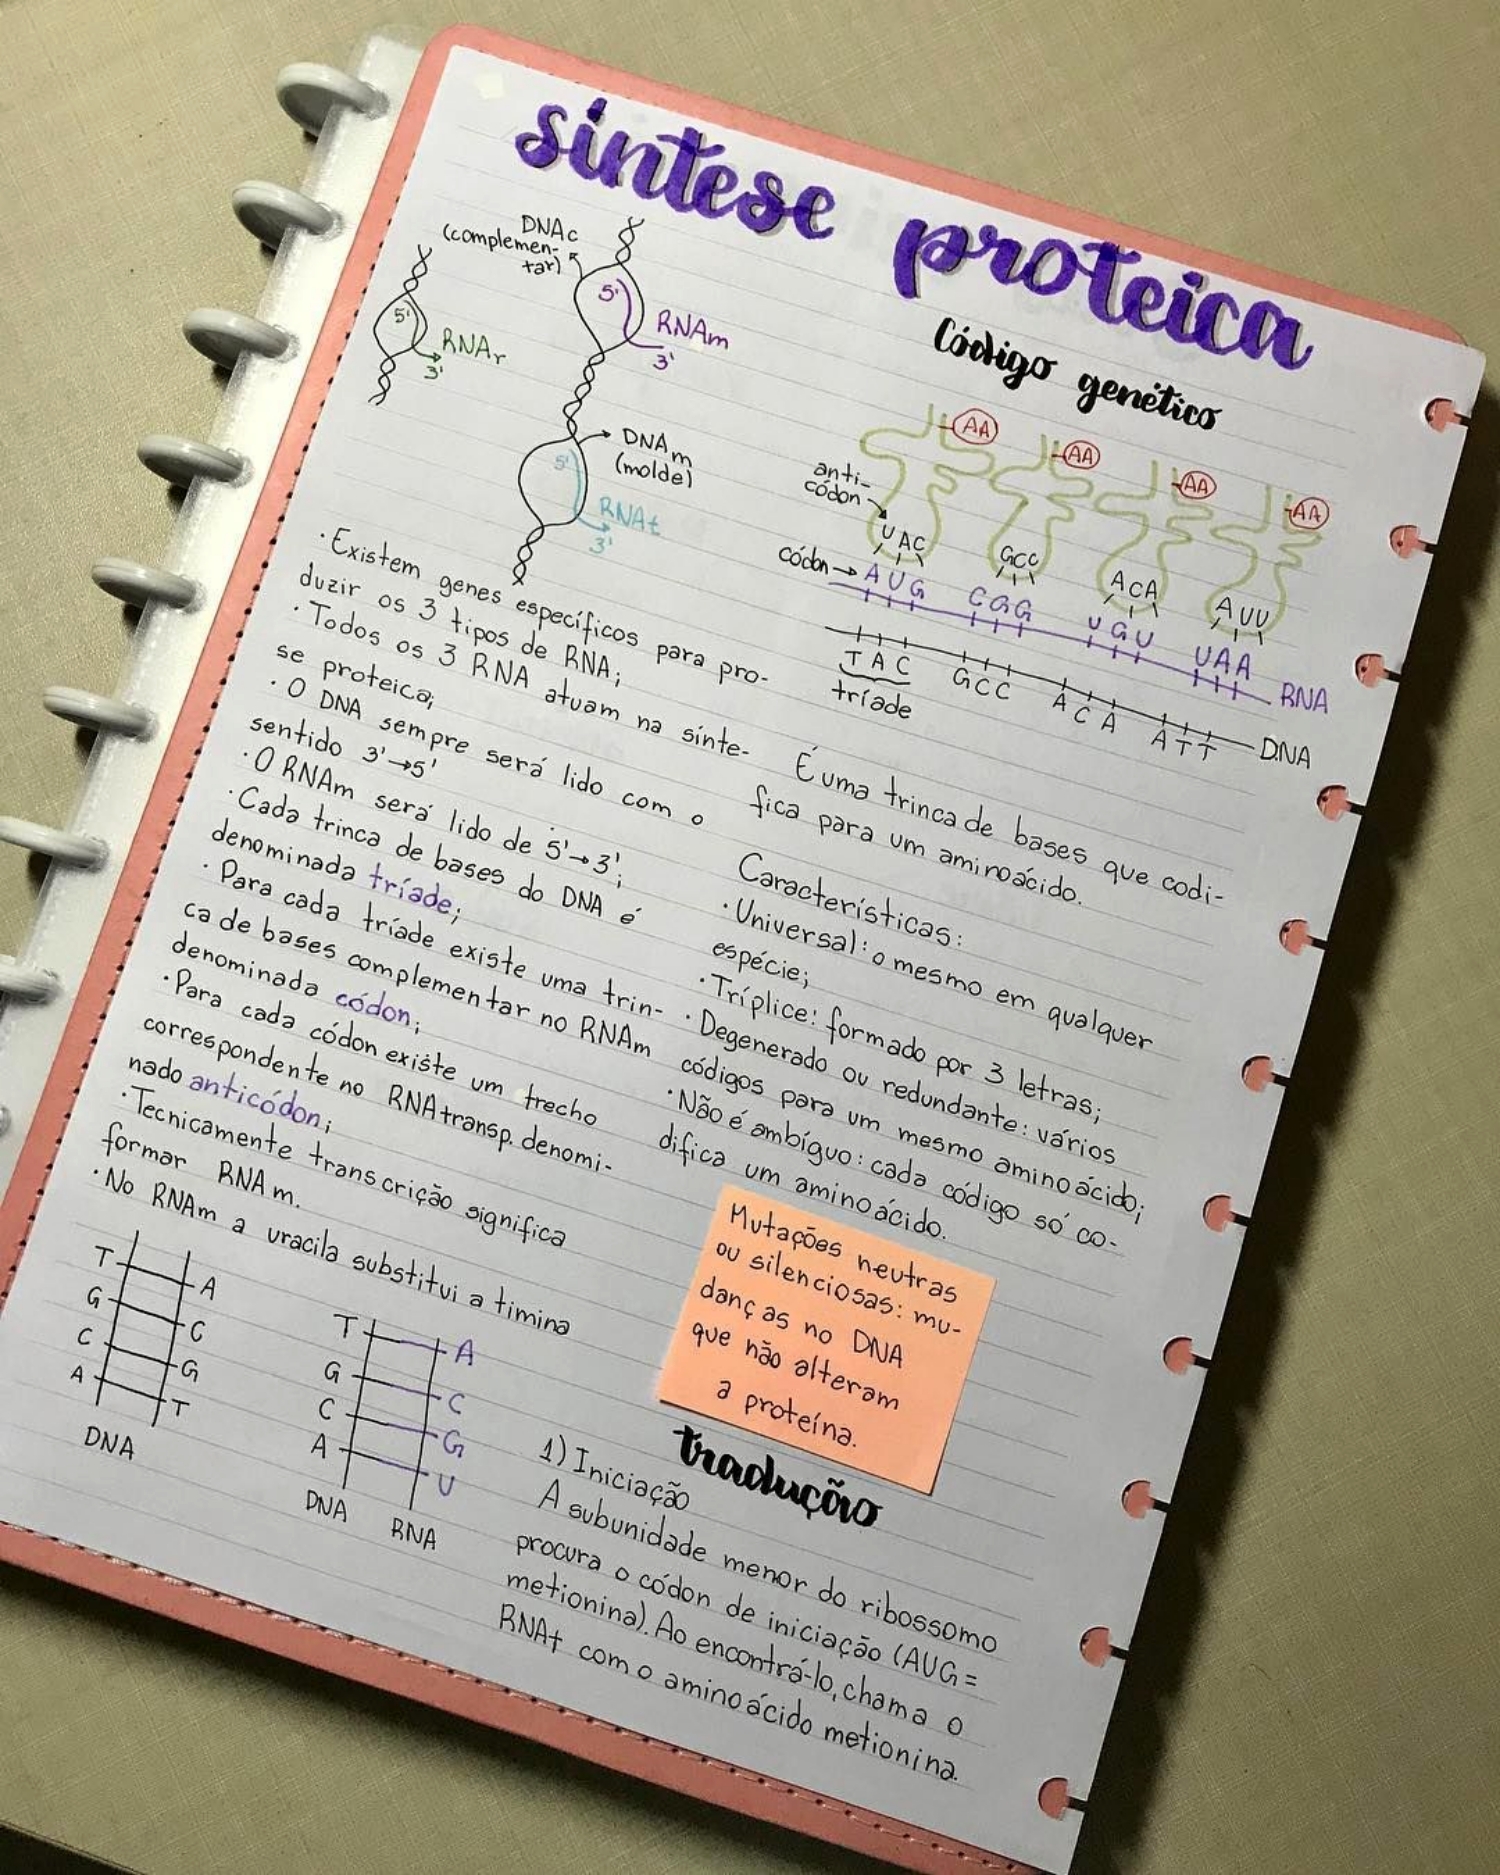 síntese proteica
DNAc
(complemen-
tar)
5'
RNAm
3'
5'
RNAr
3'
DNAm
(molde)
5'
RNAt
3'
· Existem genes específicos para pro-
duzir os 3 tipos de RNA;
· Todos os 3 RNA atuam na sínte-
se proteica;
· O DNA sempre será lido com o
sentido 3'→5'
· O RNAm será lido de 5'→3';
· Cada trinca de bases do DNA é
denominada tríade;
· Para cada tríade existe uma trin-
ca de bases complementar no RNAm
denominada códon;
· Para cada códon existe um trecho
correspondente no RNAtransp. denomi-
nado anticódon;
· Tecnicamente transcrição significa
formar RNAm.
· No RNAm a uracila substitui a timina
T A
G C
C G
A T
DNA
T A
G C
C G
A U
DNA RNA
Código genético
AA AA AA AA
anti-
códon
UAC GCC ACA AUU
códon→ AUG CGG UGU UAA
RNA
TAC GCC ACA ATT
DNA
tríade
É uma trinca de bases que codi-
fica para um aminoácido.
Características:
· Universal: o mesmo em qualquer
espécie;
· Tríplice: formado por 3 letras;
· Degenerado ou redundante: vários
códigos para um mesmo aminoácido;
· Não é ambíguo: cada código só co-
difica um aminoácido.
Mutações neutras
ou silenciosas: mu-
danças no DNA
que não alteram
a proteína.
tradução
1) Iniciação
A subunidade menor do ribossomo
procura o códon de iniciação (AUG=
metionina). Ao encontrá-lo, chama o
RNAt com o aminoácido metionina.